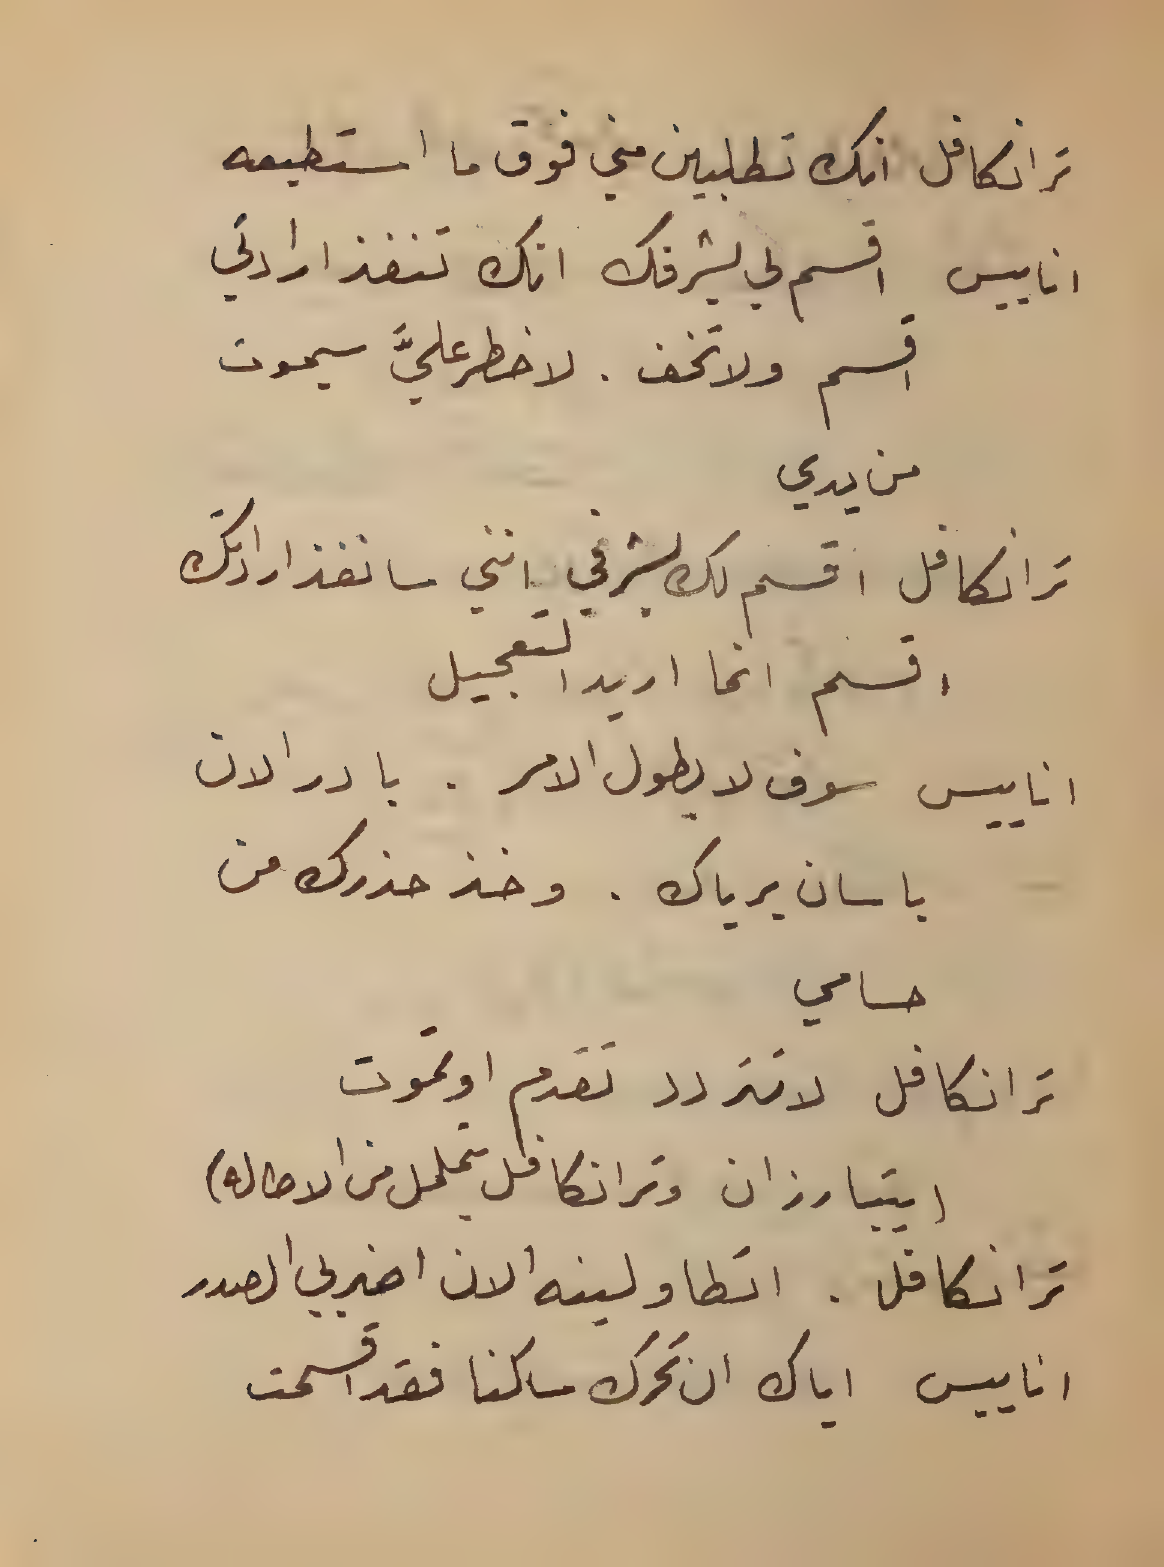 ترانكافل انك تطلبين مني فوق ما استطيعه
اناييس اقسم لي بشرفك انك تنفذ ارادتي
اقسم ولا تخف . لا خطر عليَّ سيموت
من يدي
ترانكافل اقسم لك بشرفي انني سانفذ ارادتك
اقسم انما اريد التعجيل
اناييس سوف لا يطول الامر . بادر الان
باسان برياك . وخذ حذرك من
حسامي
ترانكافل لا تتردد تقدم او تموت
(يتبارزان وترانكافل يتململ من الاطاله)
ترانكافل . اتطاولينه الان اضربي الصدر
اناييس اياك ان تحرك ساكنا فقد اقسمت